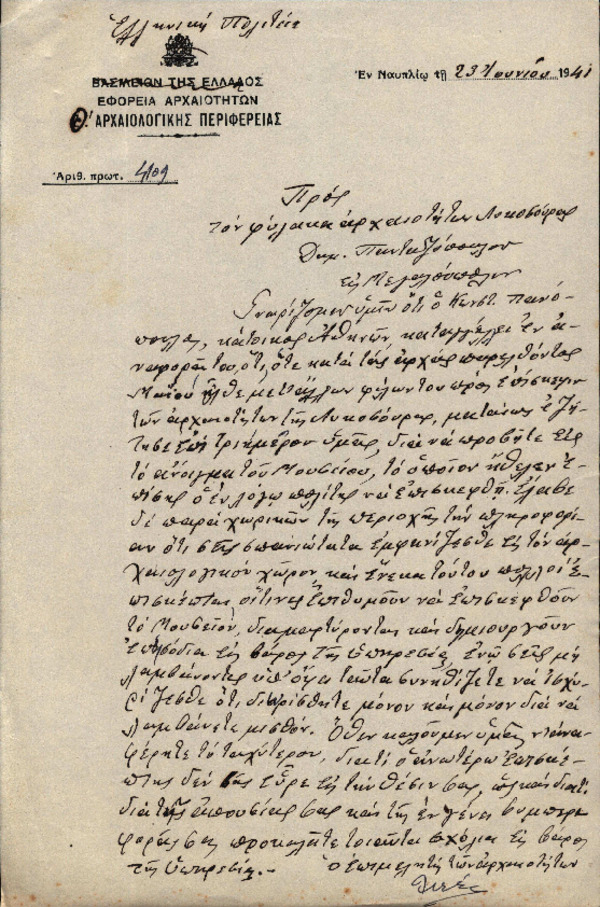 Ἑλληνικὴ Πολιτεία
ΒΑΣΙΛΕΙΟΝ ΤΗΣ ΕΛΛΑΔΟΣ
ΕΦΟΡΕΙΑ ΑΡΧΑΙΟΤΗΤΩΝ
Θ' ΑΡΧΑΙΟΛΟΓΙΚΗΣ ΠΕΡΙΦΕΡΕΙΑΣ
Ἐν Ναυπλίῳ τῇ 23 Ἰουνίου 1941
Ἀριθ. πρωτ.
Πρὸς
τὸν φύλακα ἀρχαιοτήτων Λυκοσούρας
Δημ. Πανταζόπουλον
εἰς Μεγαλόπολιν
Γνωρίζομεν ὑμῖν ὅτι ὁ Κωνστ. Πανό-
πουλος, κάτοικος Ἀθηνῶν, καταγγέλλει ἐν ἀ-
ναφορᾷ του, ὅτι, ὅτε κατὰ τὰς ἀρχὰς παρελθόντος
Μαΐου ἦλθε μετ' ἄλλων φίλων του πρὸς ἐπίσκεψιν
τῶν ἀρχαιοτήτων τῆς Λυκοσούρας, ματαίως ἐζή-
τησε ἐπὶ τριήμερον ὑμᾶς, διὰ νὰ προβῆτε εἰς
τὸ ἄνοιγμα τοῦ Μουσείου, τὸ ὁποῖον ἤθελεν ἐ-
πίσης ὁ ἐν λόγῳ πολίτης νὰ ἐπισκεφθῇ. Ἔλαβε
δὲ παρὰ χωρικῶν τῆς περιοχῆς τὴν πληροφορί-
αν ὅτι σεῖς σπανιώτατα ἐμφανίζεσθε εἰς τὸν ἀρ-
χαιολογικὸν χῶρον, καὶ ἕνεκα τούτου πολλοὶ ἐ-
πισκέπται, οἵτινες ἐπιθυμοῦν νὰ ἐπισκεφθοῦν
τὸ Μουσεῖον, διαμαρτύρονται καὶ δημιουργοῦν
ἐπεισόδια εἰς βάρος τῆς ὑπηρεσίας, ἐνῷ σεῖς μὴ
λαμβάνοντες ὑπ' ὄψει ταῦτα συνηθίζετε νὰ ἰσχυ-
ρίζεσθε ὅτι διωρίσθητε μόνον καὶ μόνον διὰ νὰ
λαμβάνετε μισθόν. Ὅθεν καλοῦμεν ὑμᾶς ν' ἀνα-
φέρητε τὸ ταχύτερον, διατὶ ὁ ἀνωτέρω ἐπισκέ-
πτης δὲν σᾶς εὗρε εἰς τὴν θέσιν σας, ὡς καὶ διατὶ
διὰ τῆς ἀπουσίας σας καὶ τῆς ἐν γένει συμπερι-
φορᾶς σας προκαλῆτε τοιαῦτα σχόλια εἰς βάρος
τῆς ὑπηρεσίας.-
ὁ ἐπιμελητὴς τῶν ἀρχαιοτήτων